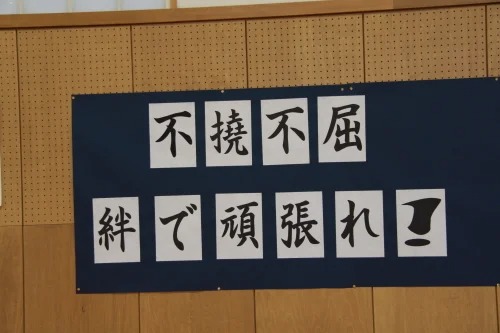 不撓不屈
絆で頑張れ!